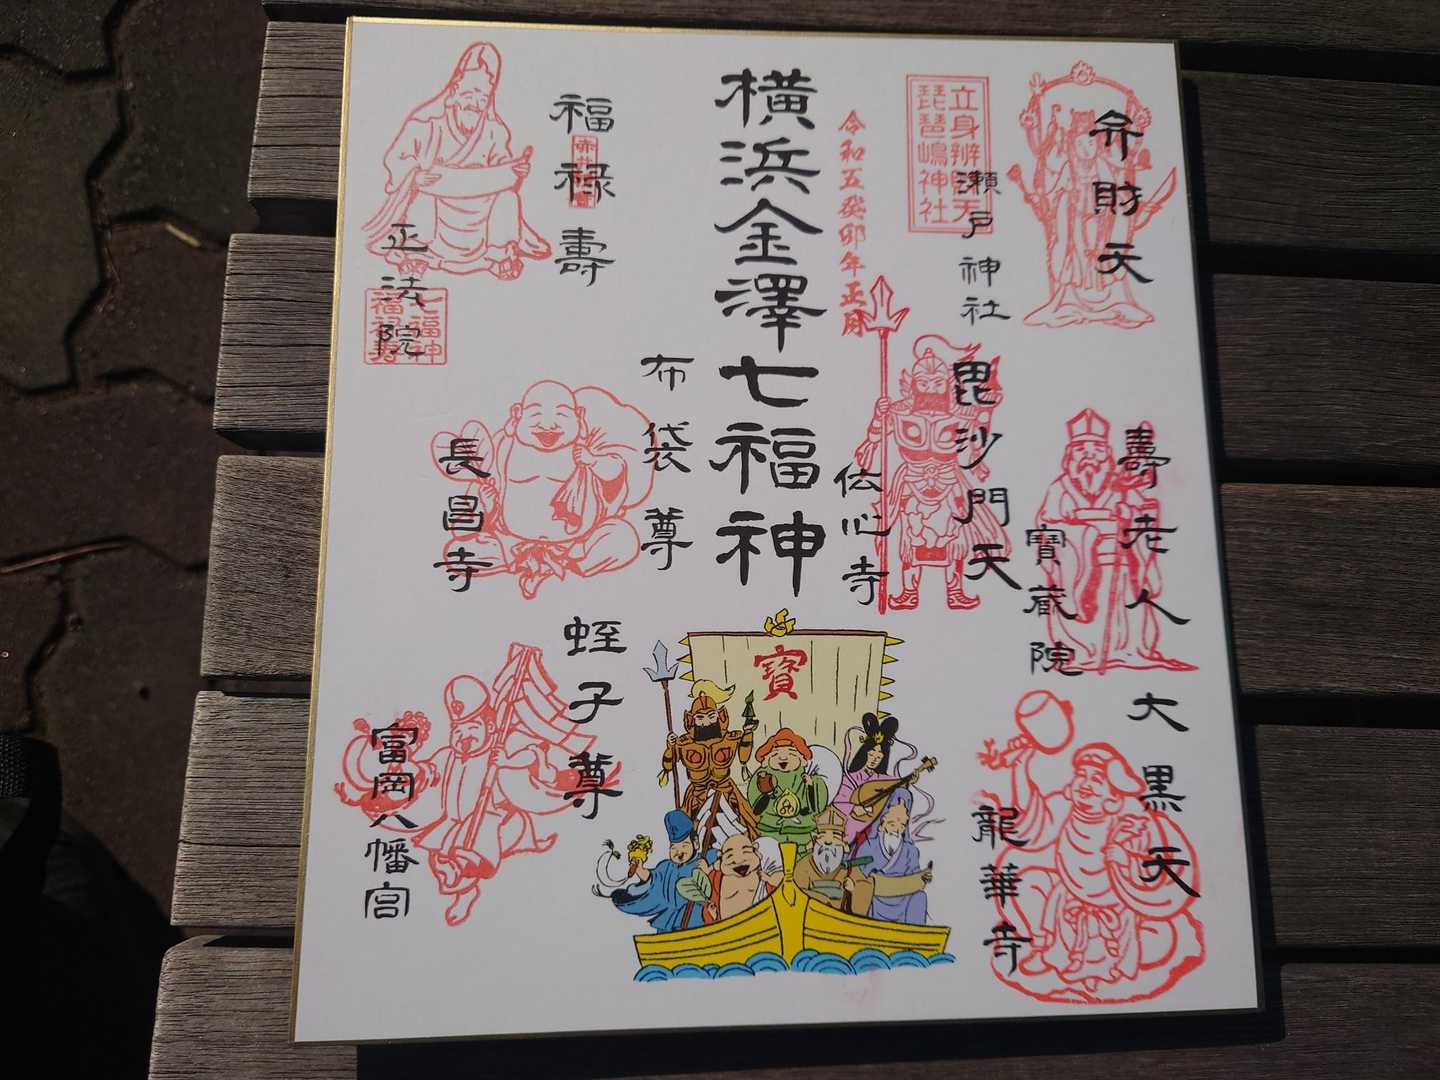 弁財天
瀬戸神社
立身辨財天
琵琶嶋神社
令和五癸卯年正月
横浜金澤七福神
福禄壽
正法院
七福神
福禄寿
壽老人
寶蔵院
毘沙門天
伝心寺
布袋尊
長昌寺
大黒天
龍華寺
蛭子尊
富岡八幡宮
寶